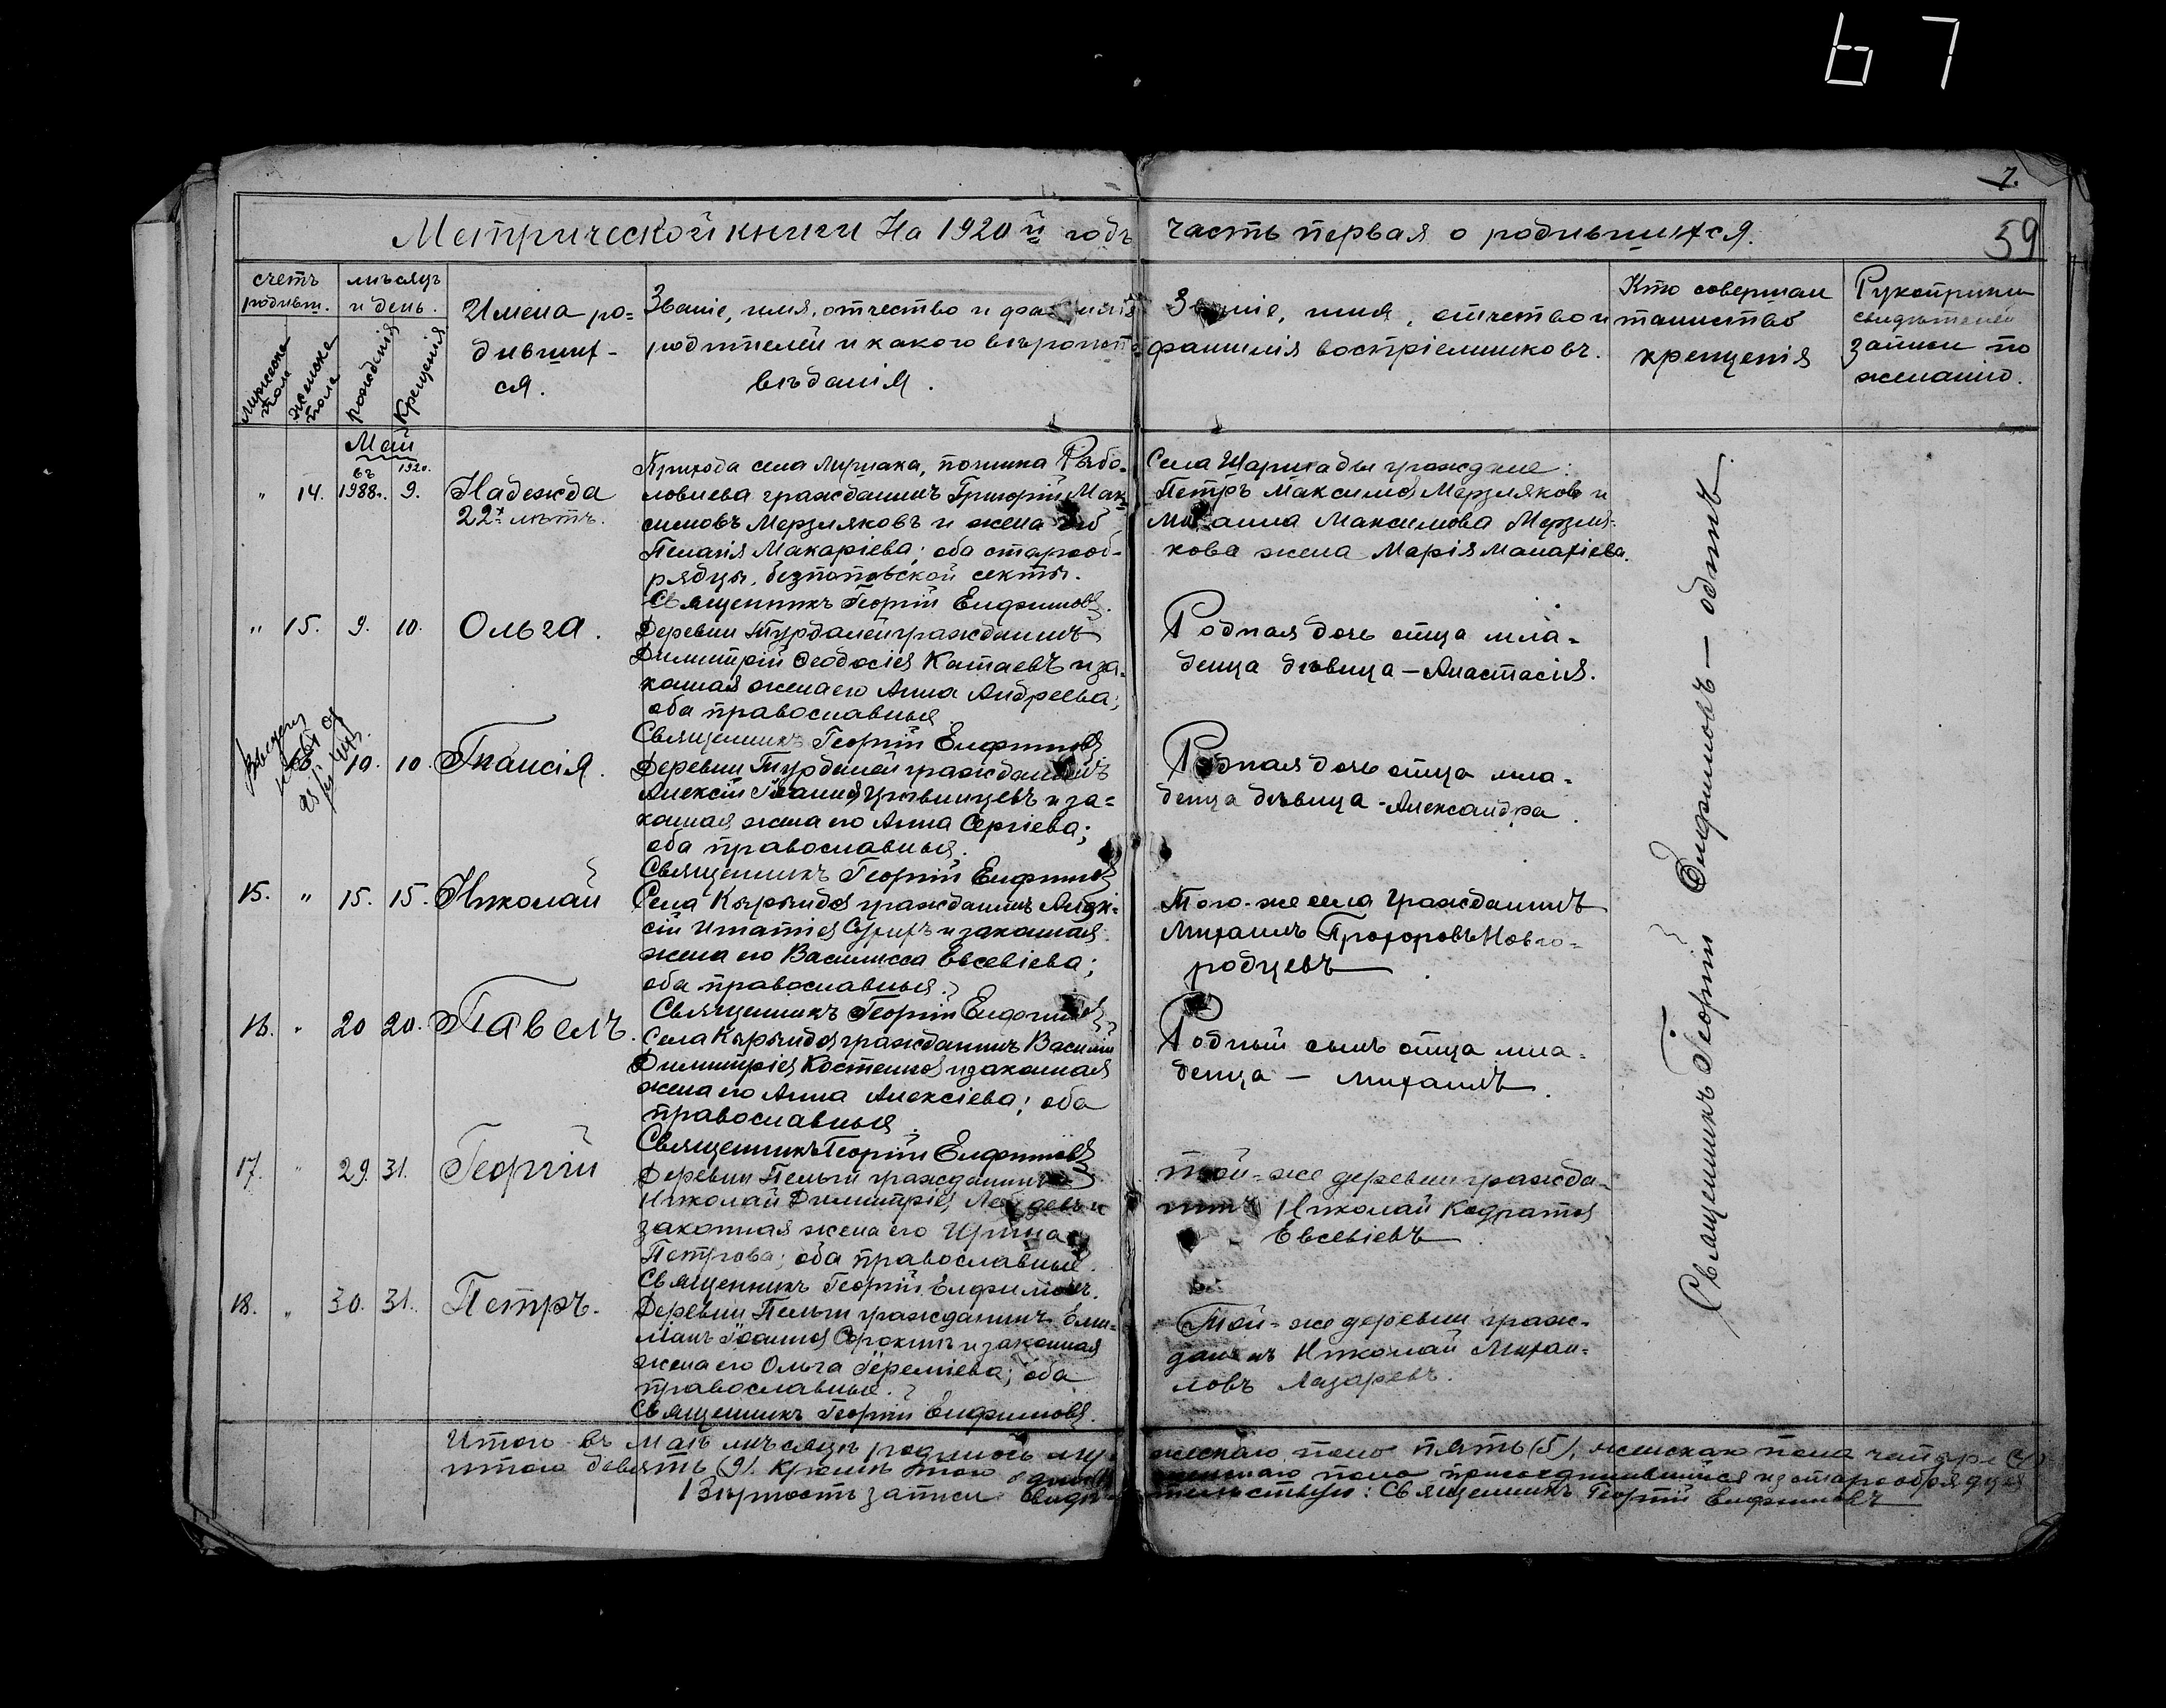 67
7.
59
Метрической книги На 1920й годъ часть первая о родившихся.
счетъ родивш.
мѣсяцъ и день.
мужеска пола
женска пола
рожденія
крещенія
Имена ро-
дивших-
ся.
Званіе, имя, отчество и фамилія
родителей и какого вѣроиспо-
вѣданія.
Званіе, имя, отчество и
фамилія воспріемниковъ.
Кто совершал
таинство
крещенія
Рукоприкл
свидѣтелей
записи по
желанію.
Май
въ 1920.
" 14. 1988г. 9. Надежда
22х лѣтъ.
Прихода села, починка Рябо-
ловцева гражданинъ Григорій Мак-
симовъ Мерзляковъ и жена его
Пелагія Макаріева; оба старооб-
рядцы, безпоповской секты.
Священникъ Георгій Елфимовъ.
Села Шаркада граждане:
Петръ Максимов Мерзляковъ и
Максимова Мерзля-
кова жена Марія
" 15. 9. 10. Ольга.
Деревни Турдалей гражданинъ
Димитрій Ѳеодосіев Катаевъ и за-
конная жена его Анна Андреева;
оба православныя
Священникъ Георгій Елфимовъ
Родная дочь отца мла-
денца дѣвица – Анастасія.
10. 10. Таисія.
Деревни Турдалей гражданинъ
Алексій Іоаннов и за-
конная жена его Анна Сергіева;
оба православныя.
Священникъ Георгій Елфимовъ
Родная дочь отца мла-
денца дѣвица - Александра.
15. " 15. 15. Николай
Села Кырында гражданинъ
Игнатіев и законная
жена его Василисса Евсевіева;
оба православныя.
Священникъ Георгій Елфимовъ
Того-же села гражданинъ
Михаилъ Прохоровъ Новго-
родцевъ
16. " 20 20. Павелъ.
Села Кырында гражданинъ Василій
Димитріев и законная
жена его Анна Алексіева; оба
православныя.
Священникъ Георгій Елфимовъ
Родный сынъ отца мла-
денца – Михаилъ.
17. " 29. 31. Георгій
Деревни Пельги гражданинъ
Николай Димитріев и
законная жена его Ирина
Петрова; оба православные.
Священникъ Георгій Елфимовъ.
Той-же деревни гражда-
нинъ Николай Кодратов
Евсевіевъ
18. " 30. 31. Петръ.
Деревни Пельги гражданинъ Еми-
ліанъ Іоаннов Сорокинъ и законная
жена его Ольга Іереміева; оба
православные.
Священникъ Георгій Елфимовъ.
Той-же деревни граж-
данинъ Николай Михаи-
ловъ Лазаревъ.
Священникъ Георгій Елфимовъ – одинъ
Итого въ Маѣ мѣсяцѣ родилось му- жескаго пола пять (5), женскаго пола четыре (4)
итого девять (9). Кромѣ того одна женскаго пола присоединившійся из старообрядцев
Вѣрность записи свидѣ- тельствую: Священникъ Георгій Елфимовъ